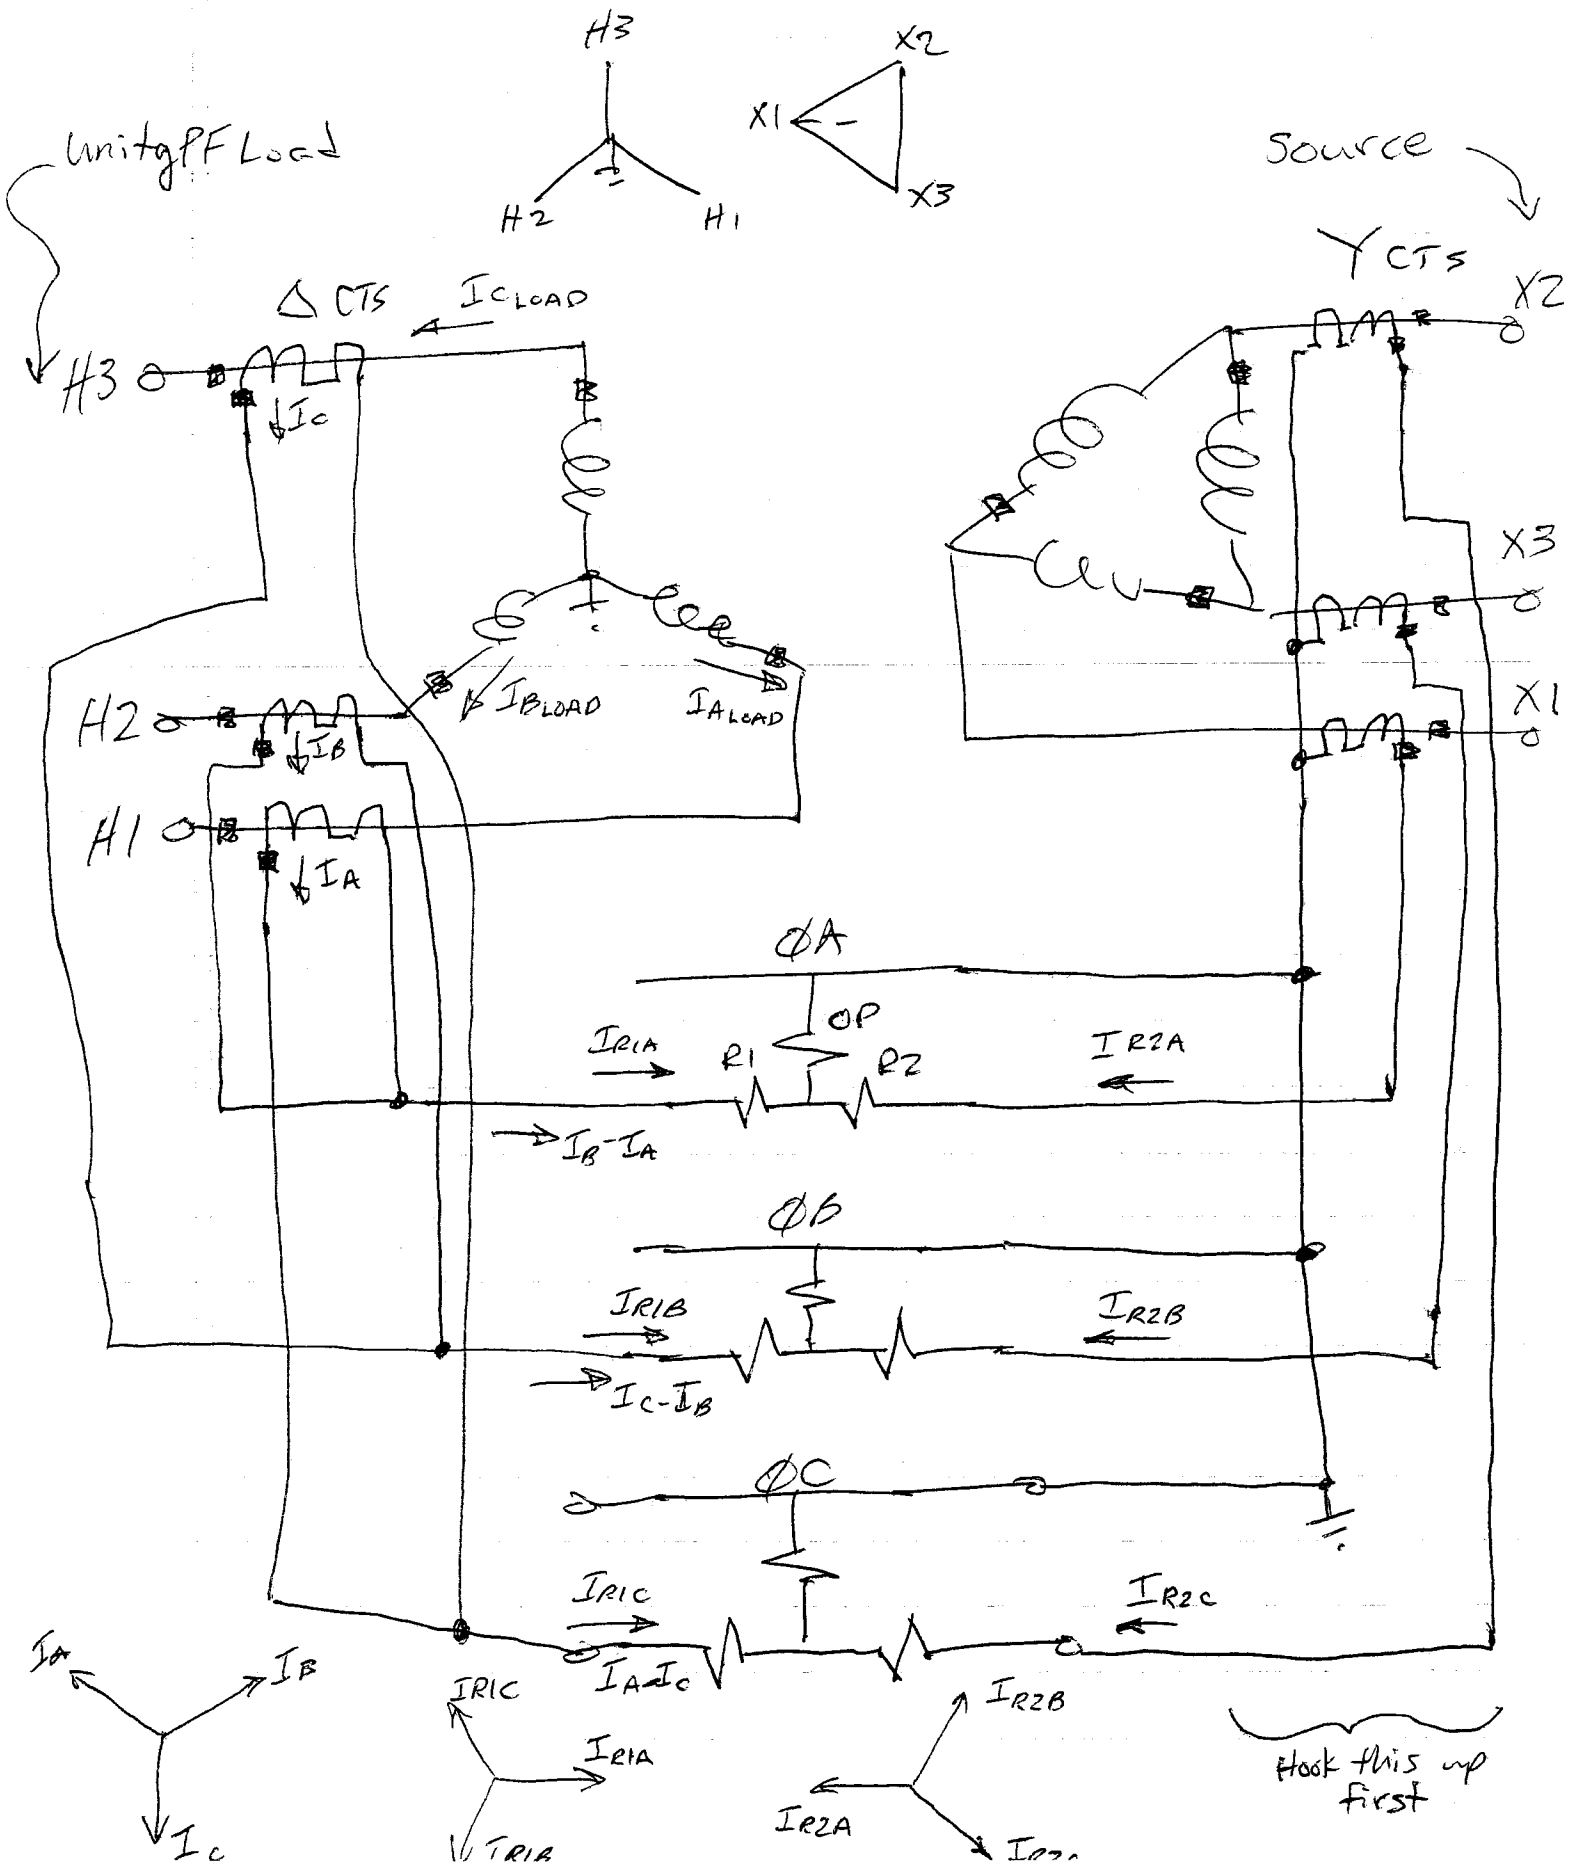 H3
X2
X1
X3
H2
H1
UnityPF Load
Source
Y CTs
X2
Δ CTS
IC LOAD
H3
IC
X3
IB LOAD
IA LOAD
X1
H2
IB
H1
IA
ØA
OP
IR1A
R1
R2
IR2A
IB-IA
ØB
IR1B
IR2B
IC-IB
ØC
IR1C
IR2C
IA-IC
IA
IB
IC
IR1C
IR1A
IR1B
IR2B
IR2A
Hook this up
first